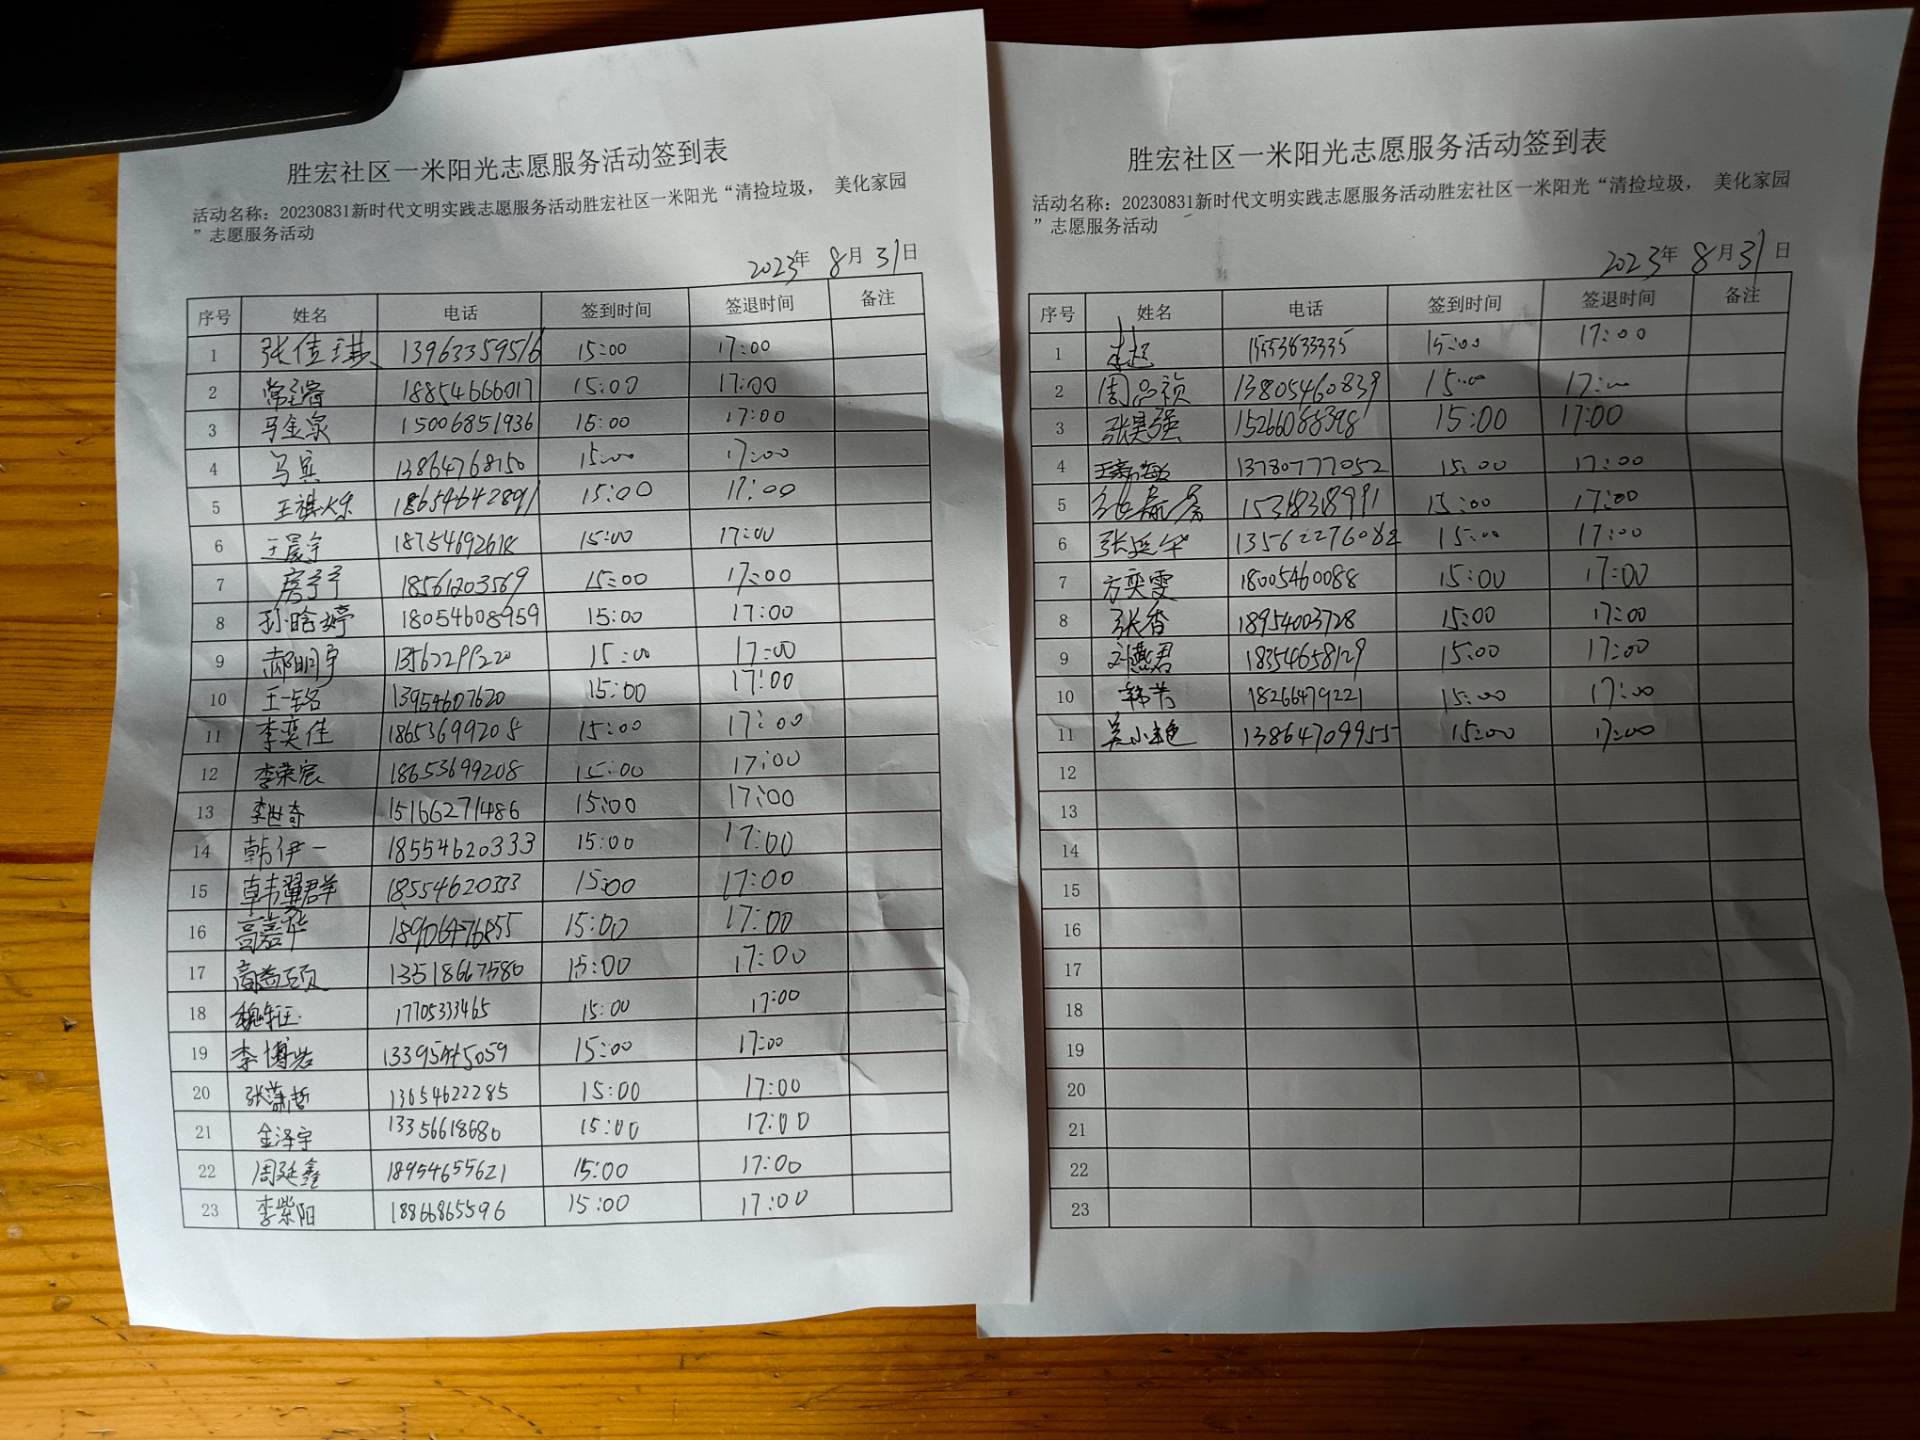 胜宏社区一米阳光志愿服务活动签到表
活动名称：20230831新时代文明实践志愿服务活动胜宏社区一米阳光“清捡垃圾， 美化家园
”志愿服务活动
2023年 8月 31日
序号 姓名 电话 签到时间 签退时间 备注
1 张佳琪 13963359516 15:00 17:00
2 18854666017 15:00 17:00
3 马金泉 15006851936 15:00 17:00
4 马宾 13864768150 15:00 17:00
5 王祺烁 18654642891 15:00 17:00
6 王晨宇 18754692618 15:00 17:00
7 18561203569 15:00 17:00
8 孙晗婷 18054608959 15:00 17:00
9 郝明宇 13562299220 15:00 17:00
10 13954607620 15:00 17:00
11 李奕佳 18653699208 15:00 17:00
12 李荣宸 18653699208 15:00 17:00
13 李世奇 15166271486 15:00 17:00
14 韩伊一 18554620333 15:00 17:00
15 韩翼群 18554620333 15:00 17:00
16 高嘉华 18906476855 15:00 17:00
17 13518667580 15:00 17:00
18 1770533465 15:00 17:00
19 李博岩 15:00 17:00
20 13654622285 15:00 17:00
21 金泽宇 13356618680 15:00 17:00
22 周延鑫 18954655621 15:00 17:00
23 李紫阳 18866865596 15:00 17:00
胜宏社区一米阳光志愿服务活动签到表
活动名称：20230831新时代文明实践志愿服务活动胜宏社区一米阳光“清捡垃圾， 美化家园
”志愿服务活动
2023年 8月 31日
序号 姓名 电话 签到时间 签退时间 备注
1 15553633335 15:00 17:00
2 13805460839 15:00 17:00
3 张昊强 15266088398 15:00 17:00
4 13780777052 15:00 17:00
5 15318318991 15:00 17:00
6 张延华 13562276082 15:00 17:00
7 方奕雯 18005460088 15:00 17:00
8 张香 18954003728 15:00 17:00
9 刘燕君 18354658129 15:00 17:00
10 韩芳 18266479221 15:00 17:00
11 吴小艳 13864709955 15:00 17:00
12
13
14
15
16
17
18
19
20
21
22
23